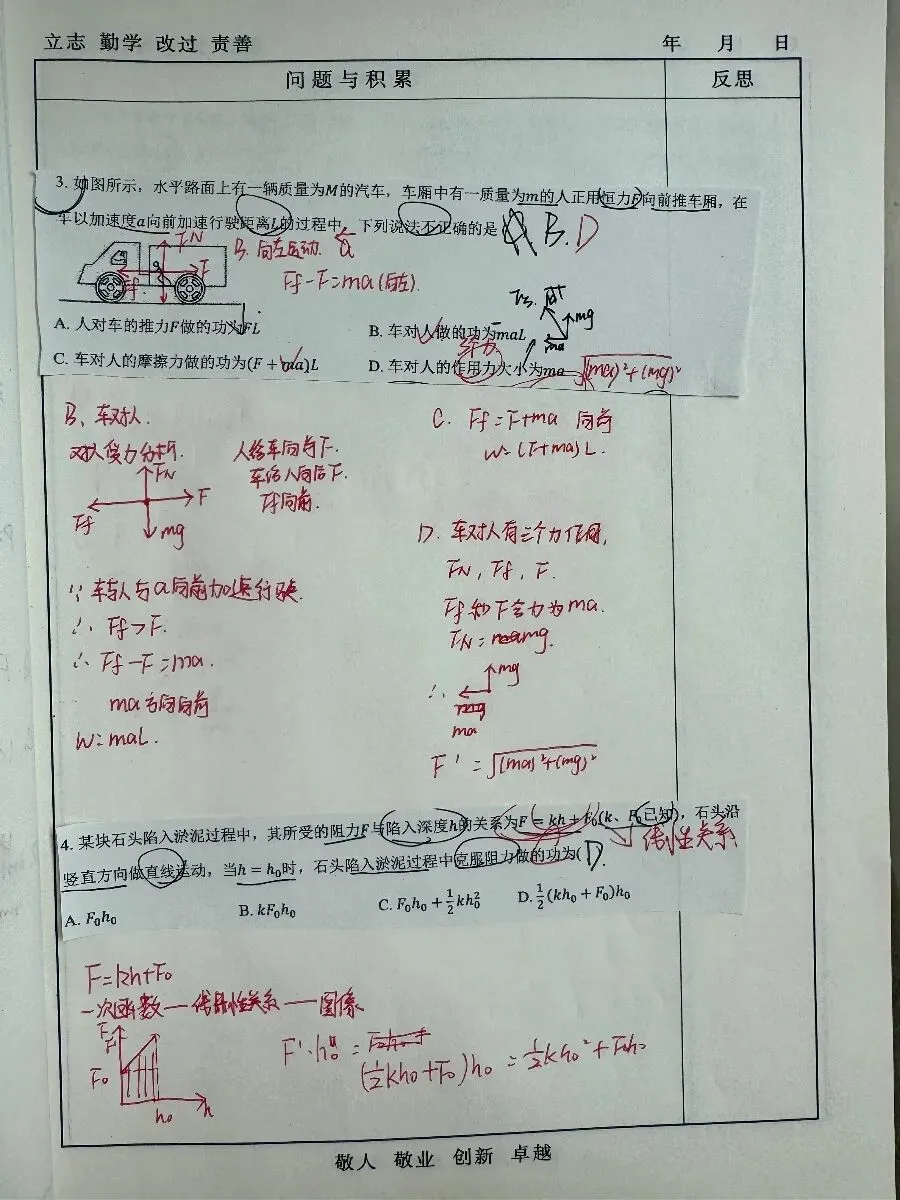 立志 勤学 改过 责善
年 月 日
问题与积累
反思
3. 如图所示，水平路面上有一辆质量为M的汽车，车厢中有一质量为m的人正用恒力F向前推车厢，在
车以加速度a向前加速行驶距离L的过程中，下列说法不正确的是
B. D
FN
F
Ff
B. 向左运动. a
Ff-F=ma(向左)
mg
ma
A. 人对车的推力F做的功为FL
B. 车对人做的功为maL
C. 车对人的摩擦力做的功为(F + ma)L
D. 车对人的作用力大小为ma
√(ma)²+(mg)²
B、车对人.
对人受力分析.
FN
F
Ff
mg
人给车向前F.
车给人向后F.
Ff向前.
∵车与人与a向前加速行驶
∴ Ff>F.
∴ Ff-F=ma.
ma方向向前
W=maL.
C. Ff=F+ma 向前
W=(F+ma)L.
D. 车对人有三个力作用,
FN, Ff, F.
Ff和F合力为ma.
FN=mg.
∴
mg
ma
F'=√(ma)²+(mg)²
4. 某块石头陷入淤泥过程中，其所受的阻力F与陷入深度h的关系为F = kh + F₀(k、F₀已知)，石头沿
线性关系
竖直方向做直线运动，当h = h₀时，石头陷入淤泥过程中克服阻力做的功为( D.
A. F₀h₀
B. kF₀h₀
C. F₀h₀ + ½kh₀²
D. ½(kh₀ + F₀)h₀
F=kh+F₀
一次函数—线性关系—图像
F
F₀
h₀
h
F'·h₀ =
(½kh₀+F₀)h₀ = ½kh₀²+F₀h₀
敬人 敬业 创新 卓越